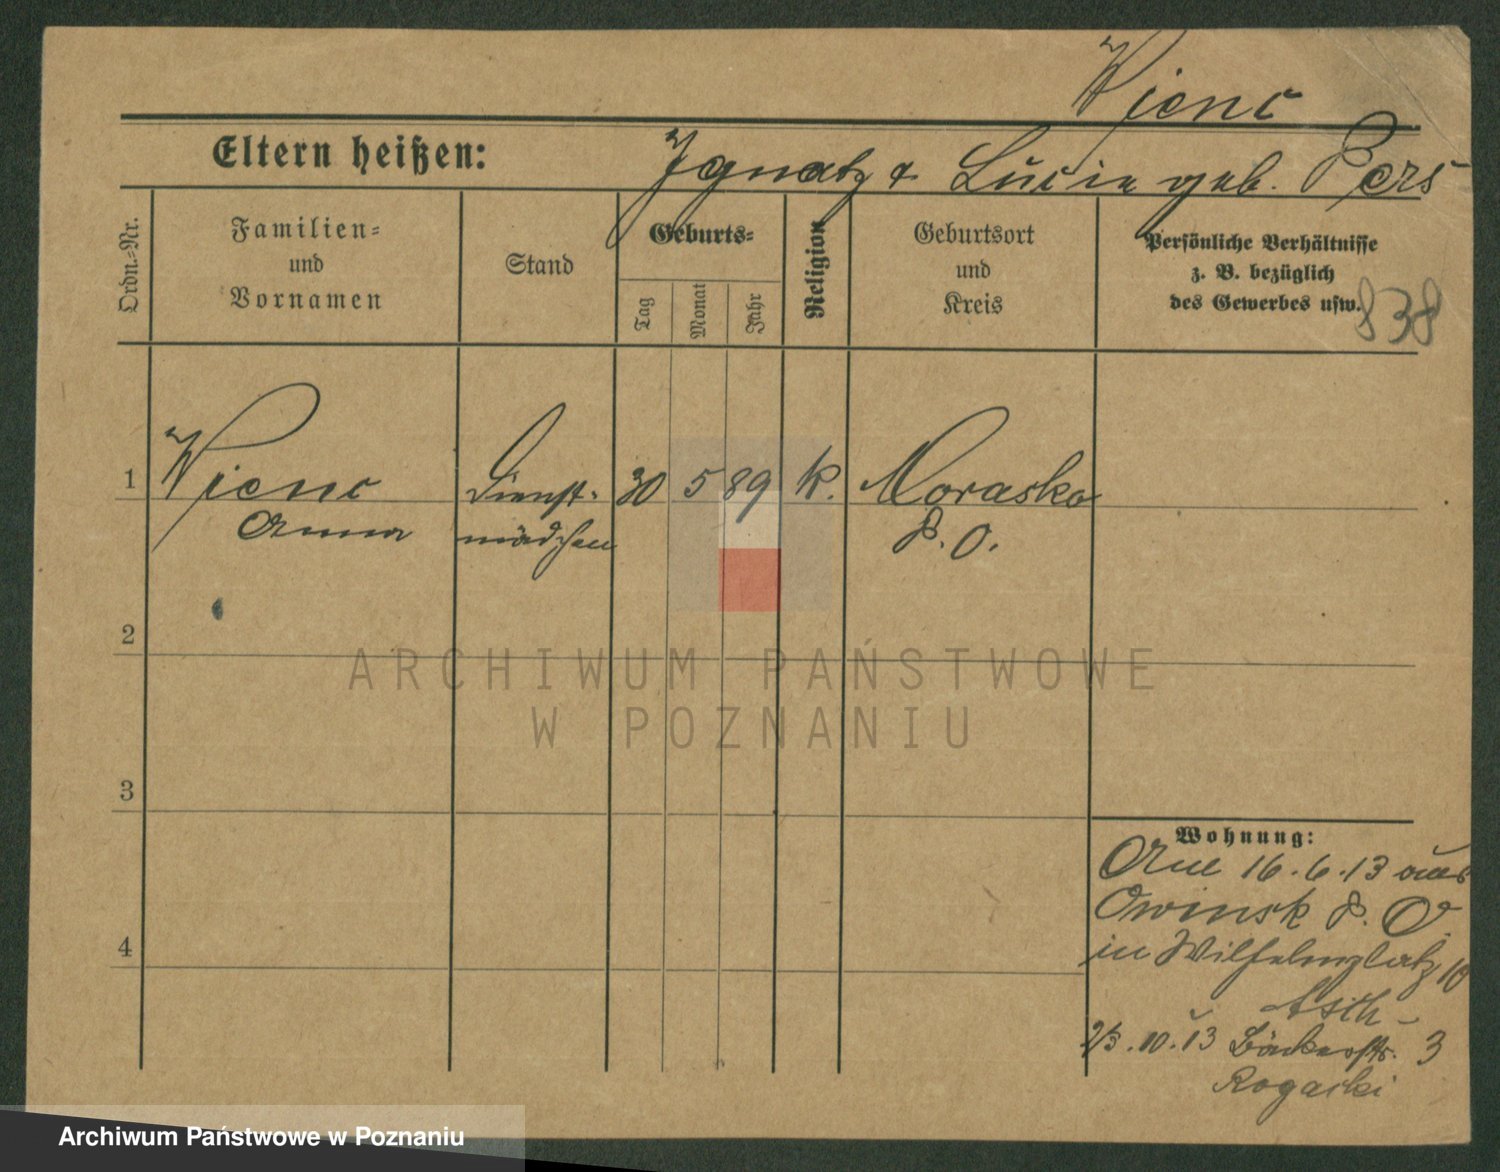 Wjenc
Eltern heißen: Ignatz & Lucie geb. Pers
Ordn.-Nr.
Familien-
und
Vornamen
Stand
Geburts-
Tag
Monat
Jahr
Religion
Geburtsort
und
Kreis
Persönliche Verhältnisse
z. B. bezüglich
des Gewerbes usw.
838
1 Wjenc Dienst- 30 5 89 k. Morasko
Anna mädchen P. O.
2
3
4
Wohnung:
16.6.13 aus
Owinsk P. O.
in Wilhelmplatz 10
Asch
2/3.10.13 Bäckerstr. 3
Rogacki
ARCHIWUM PAŃSTWOWE
W POZNANIU
Archiwum Państwowe w Poznaniu